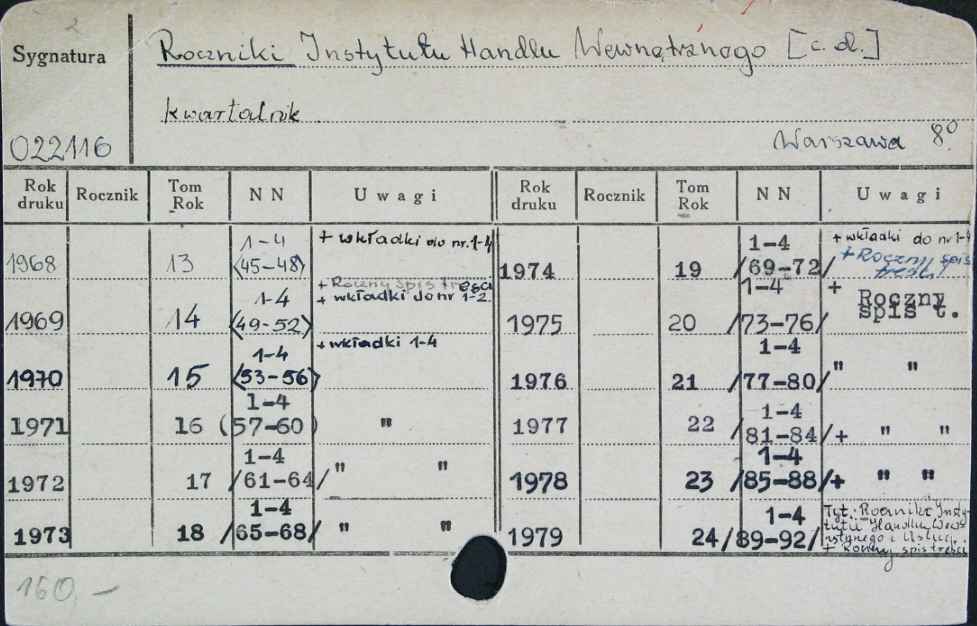 2
Sygnatura
Roczniki Instytutu Handlu Wewnętrznego [c. d.]
kwartalnik
022116
Warszawa 8º
Rok druku Rocznik Tom Rok NN Uwagi Rok druku Rocznik Tom Rok NN Uwagi
1968 13 1-4 <45-48> + wkładki do nr. 1-4 1974 19 1-4 /69-72/ + wkładki do nr 1-4 + Roczny spis treści
1969 14 1-4 <49-52> + Roczny spis treści + wkładki do nr 1-2. 1975 20 1-4 /73-76/ + Roczny spis t.
1970 15 1-4 <53-56> + wkładki 1-4 1976 21 1-4 /77-80/ " "
1971 16 1-4 (57-60) " 1977 22 1-4 /81-84/ + " "
1972 17 1-4 /61-64/ " " 1978 23 1-4 /85-88/ + " "
1973 18 1-4 /65-68/ " " 1979 24 1-4 /89-92/ Tyt. Roczniki Instytutu Handlu Wewnętrznego i Usług. + Roczny spis treści
160,-